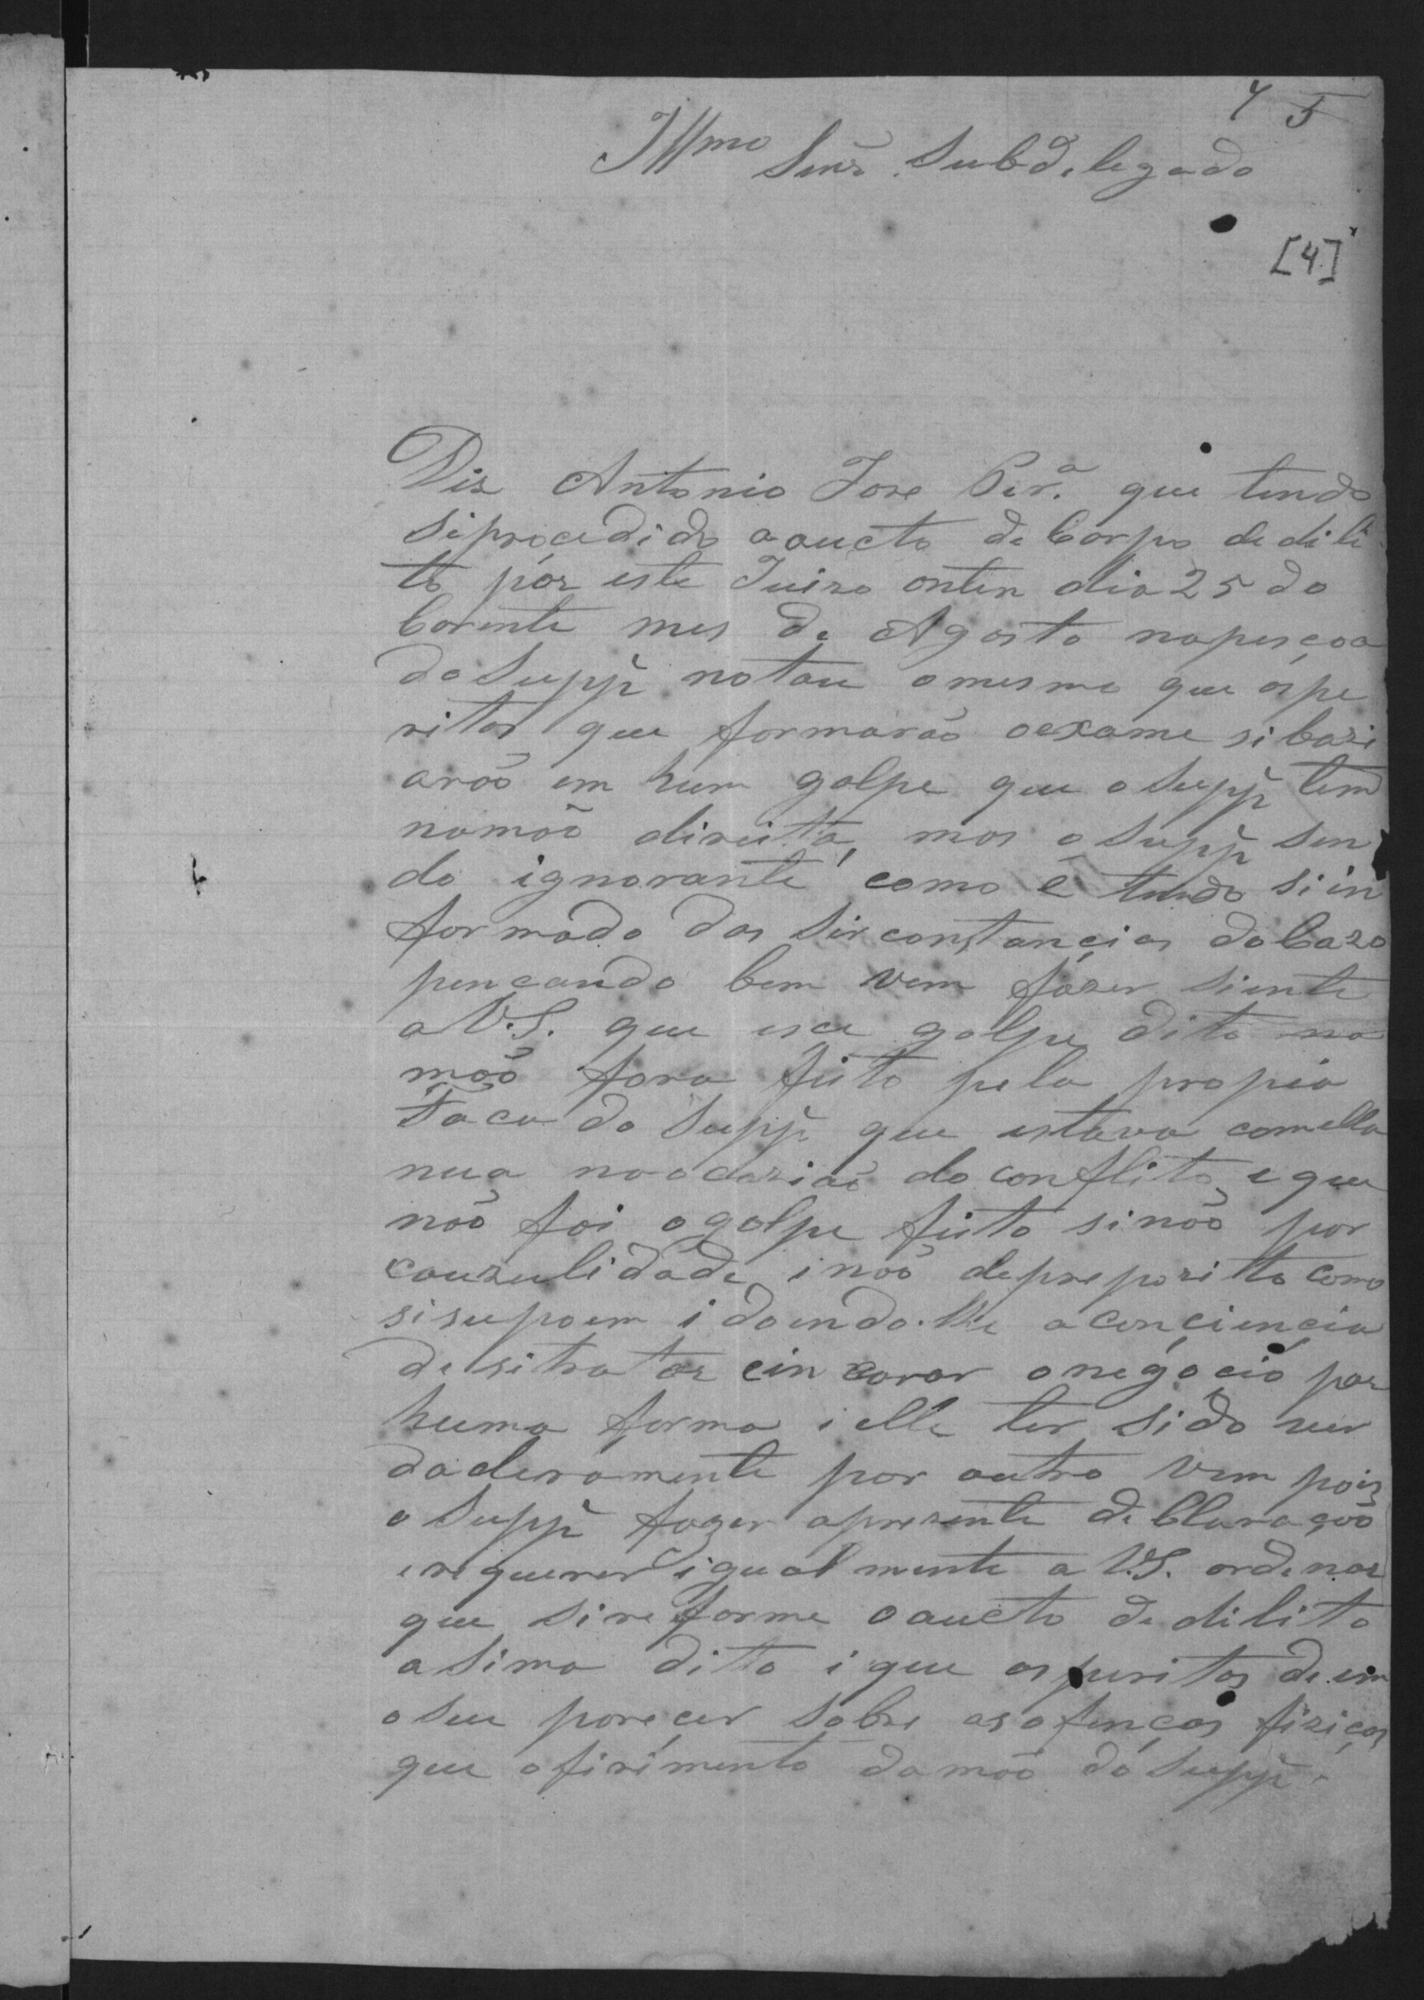 4 5
Illmo Senr. Subdelegado
[4]
Diz Antonio Jose Per.ª que tendo
siprocedido aoaucto de Corpo de deli
to por este Juizo onten dia 25 do
Corente mes de Agosto napesçoa
do Suppe. notou omesmo que ospe
ritos que formarão oexame si bazi
arão em hum golpe que o Suppe. tem
namão direita, mas o Suppe. sen
do ignorante como é tendo si in
formado das Sirconstancias doCazo
pençando bem vem fazer siente
a V.S. que esce golpe dito na
mão fora feito pela propia
faca do Suppe. que estava comella
nua naocazião do conflito, e que
não foi ogolpe feito sinão por
cauzulidade, i não depreposito como
sisupoem i doendo-lhe aconçiencia
desitratar cin onegoçio por
huma forma i elle ter sido ver
dadeiramente por outra vem pois
o Suppe. fazer apresente deClaração
erequerer igualmente a V.S. ordenar
que sireforme oaucto de delito
asima dito i que osperitos deim
oseu parecer sobre asofenças fizicas
que ofirimento damão do Suppe.